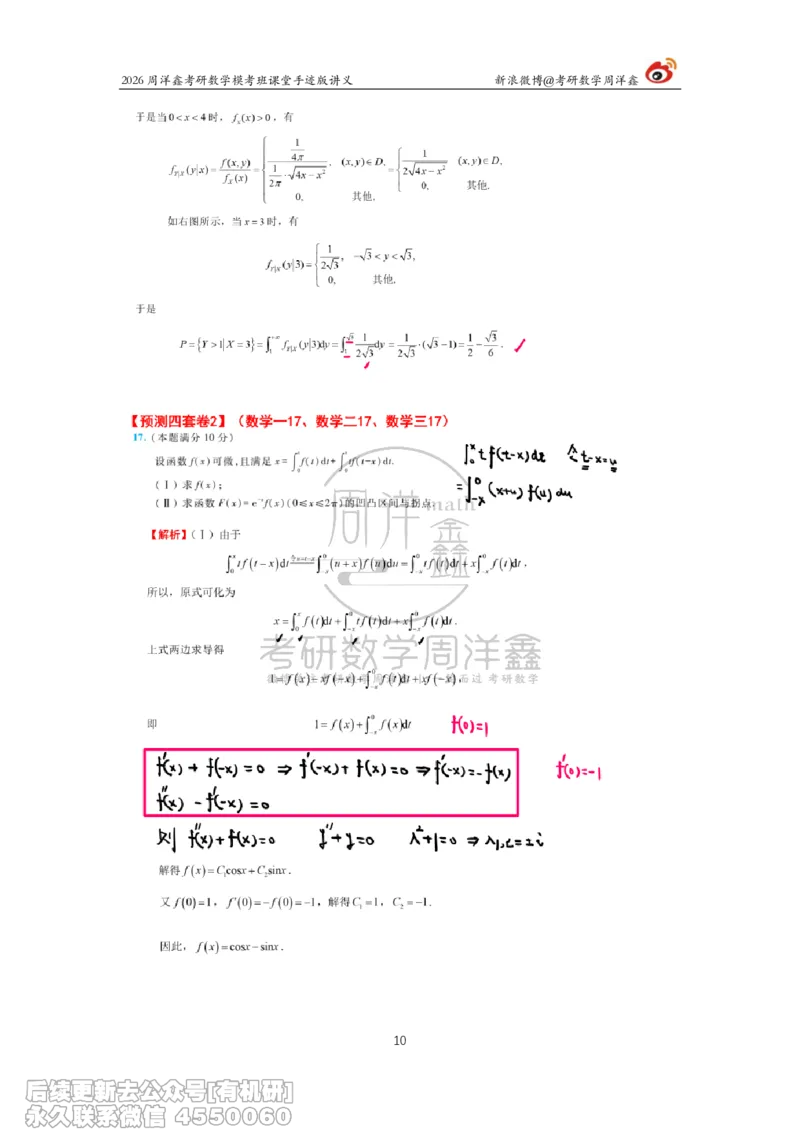 2026 周洋鑫考研数学模考班课堂手迹版讲义 新浪微博@考研数学周洋鑫
于是当 0<x<4 时， f_X(x)>0 ，有
f_{Y|X}(y|x)= f(x,y)/f_X(x) = { (1/4π)/((1/2π)·√(4x−x²)), (x,y)∈D, 0, 其他, = { 1/(2√(4x−x²)), (x,y)∈D, 0, 其他.
如右图所示，当 x=3 时，有
f_{Y|X}(y|3)= { 1/(2√3), −√3<y<√3, 0, 其他.
于是
P={Y>1|X=3}=∫_1^{+∞} f_{Y|X}(y|3)dy=∫_1^{√3} 1/(2√3) dy = 1/(2√3)·(√3−1)= 1/2 − √3/6 .
【预测四套卷2】（数学一17、数学二17、数学三17）
17.（本题满分 10 分）
设函数 f(x) 可微,且满足 x=∫_0^x f(t)dt+∫_0^x tf(t−x)dt.
（Ⅰ）求 f(x)；
（Ⅱ）求函数 F(x)=e^{-x}f(x)(0≤x≤2π)的凹凸区间与拐点.
∫_0^x t f(t-x)dt 令t-x=u
=∫_{-x}^0 (x+u) f(u)du
【解析】（Ⅰ）由于
∫_0^x tf(t−x)dt 令u=t−x ∫_{-x}^0 (u+x)f(u)du=∫_{-x}^0 tf(t)dt+x∫_{-x}^0 f(t)dt ，
所以，原式可化为
x=∫_0^x f(t)dt+∫_{-x}^0 tf(t)dt+x∫_{-x}^0 f(t)dt .
上式两边求导得
1=f(x)−xf(−x)+∫_{-x}^0 f(t)dt+xf(−x)，
即 1=f(x)+∫_{-x}^0 f(x)dt f(0)=1
f'(x)+f(-x)=0 ⇒ f'(-x)+f(x)=0 ⇒ f'(-x)=-f(x) f'(0)=-1
f''(x)-f'(-x)=0
则 f''(x)+f(x)=0 y''+y=0 λ²+1=0 ⇒ λ1,2=±i
解得 f(x)=C₁cosx+C₂sinx .
又 f(0)=1， f'(0)=−f(0)=−1，解得C₁=1，C₂=−1.
因此， f(x)=cosx−sinx .
周洋鑫
math
考研数学周洋鑫
10
后续更新去公众号[有机研]
永久联系微信 4550060